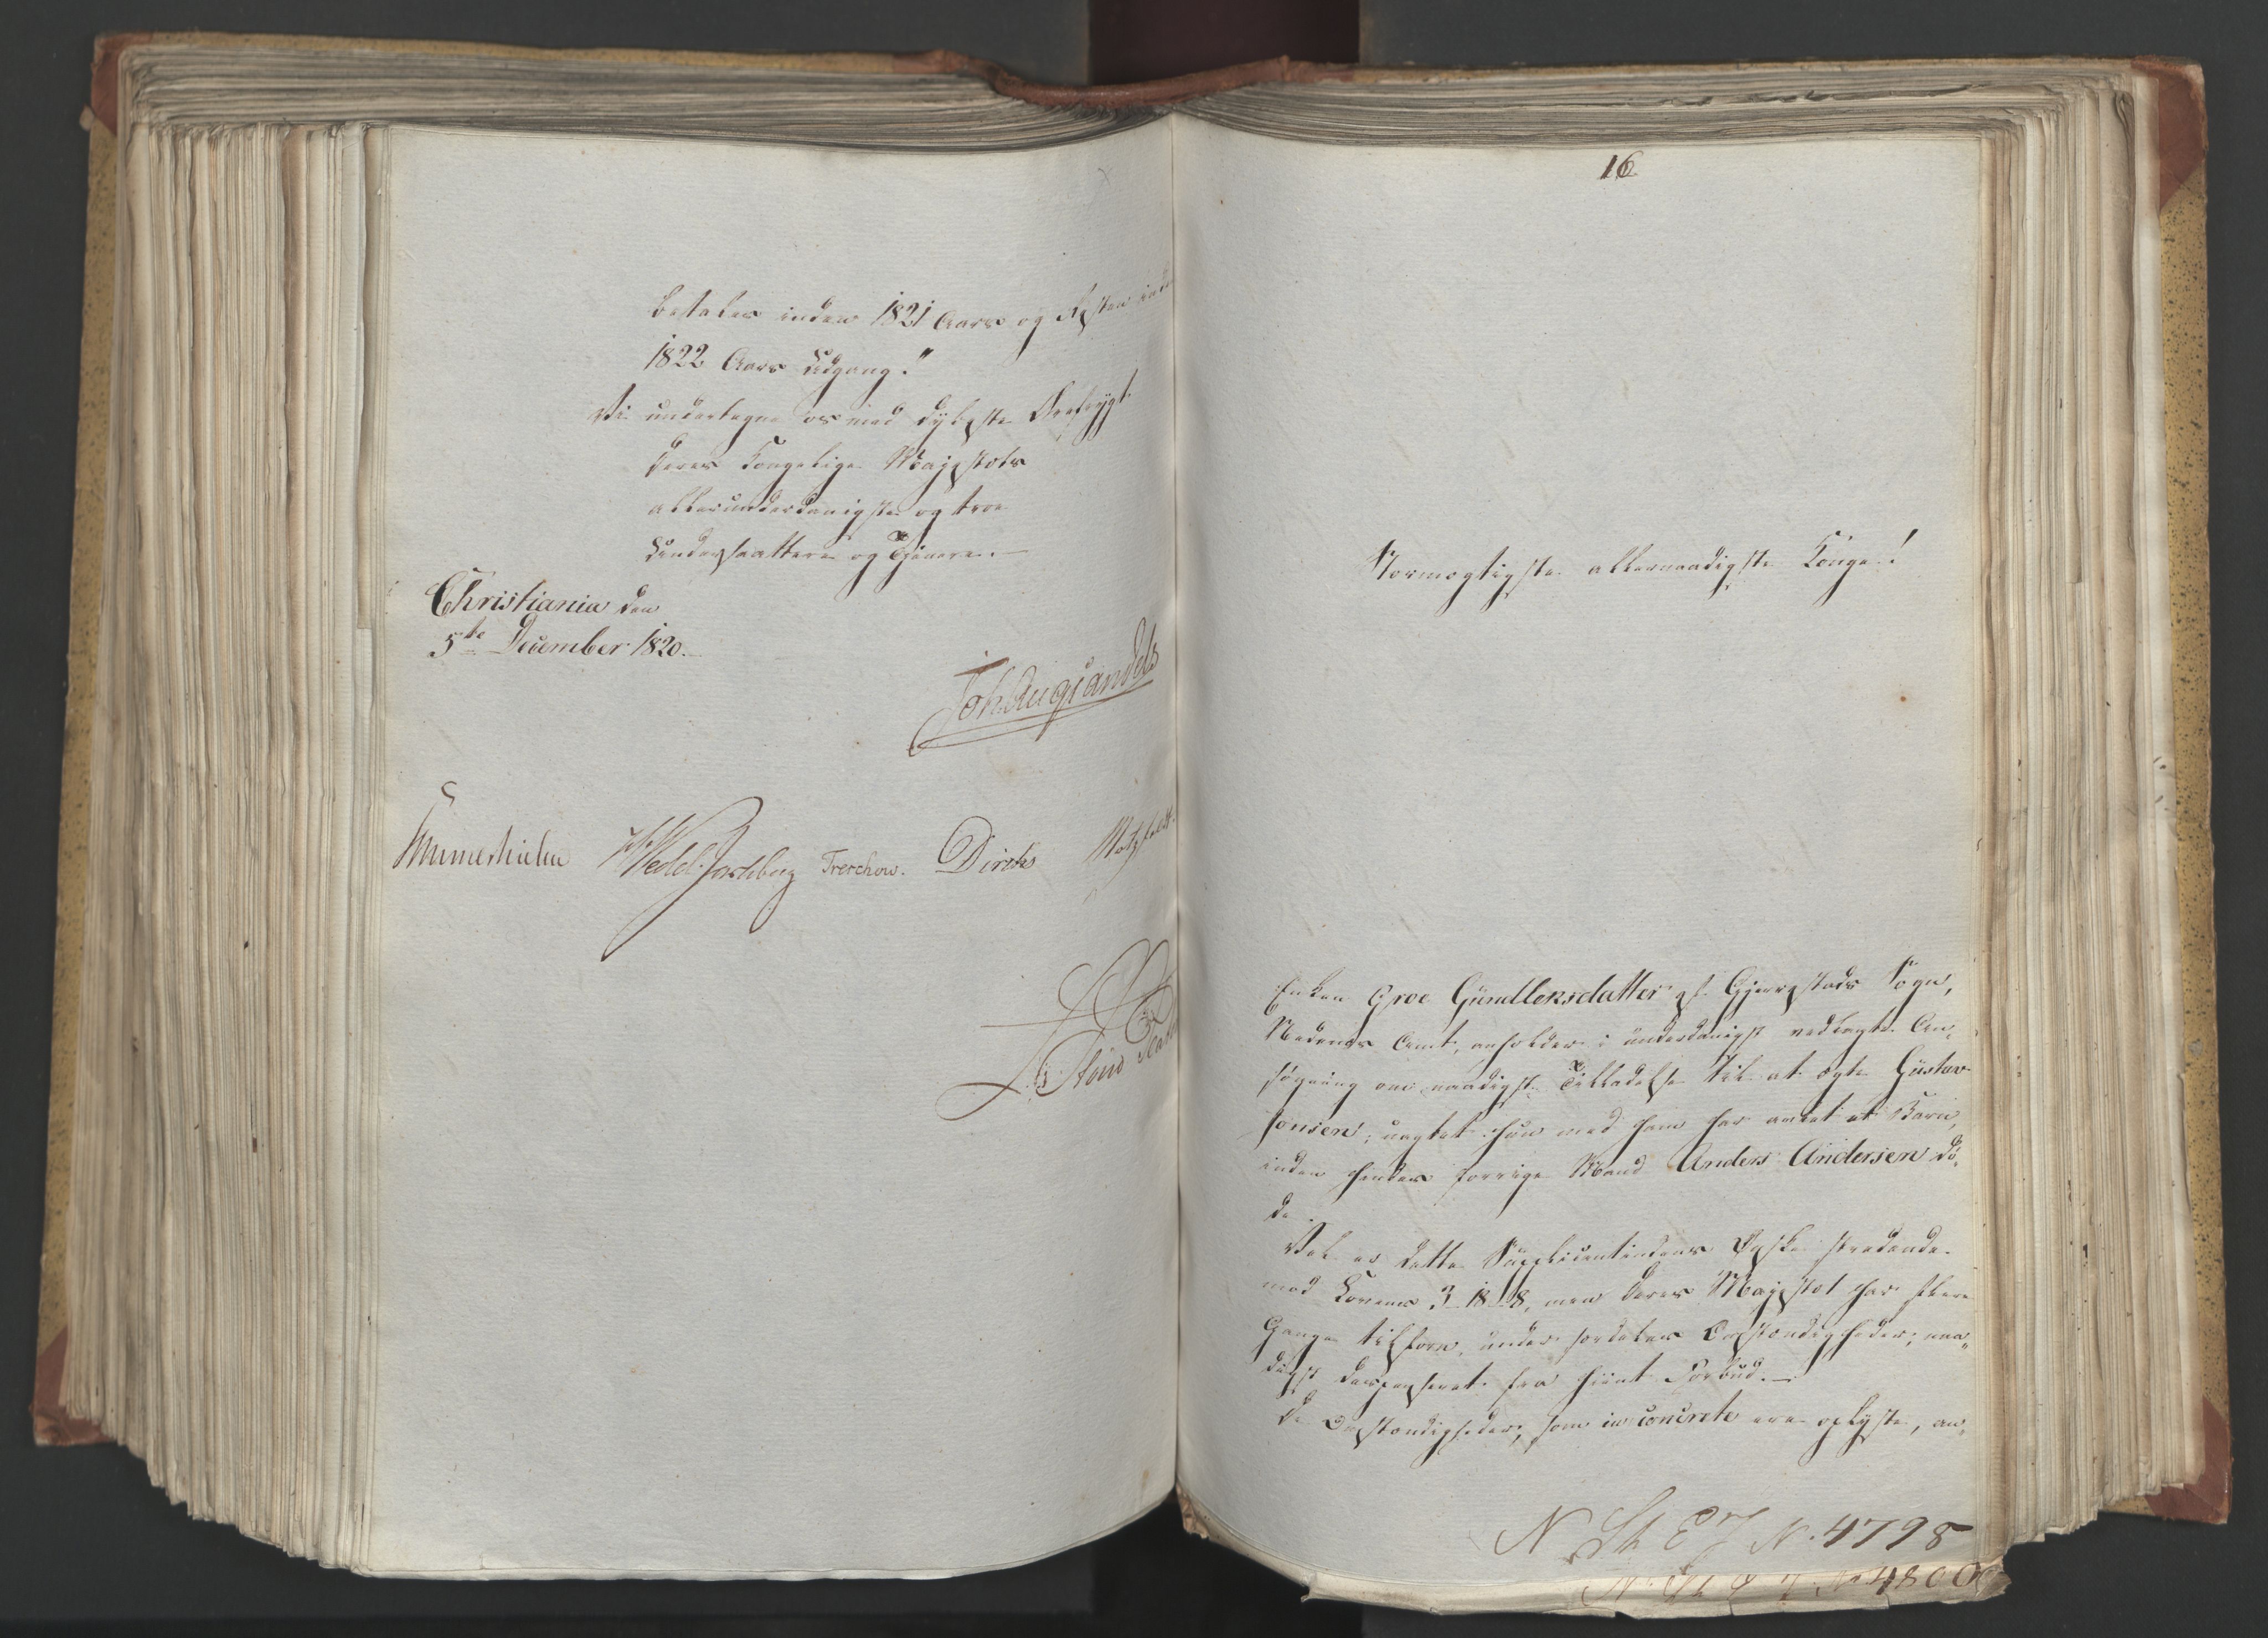 betales inden 1821 Aars og Resten inden
1822 Aars Udgang."
Vi undertegne os med dybeste Ærefrygt
Deres Kongelige Majestæts
allerunderdanigste og troe
Undersaattere og Tjenere.
Christiania den
5te December 1820.
Joh Aug Sandels
Sommerhielm HWedel Jarlsberg Treschow. Diriks Motzfeldt
16
Stormægtigste allernaadigste Konge!
Enken Groe Gundleksdatter af Gjerrestads Sogn,
Nedenes Amt, anholder i underdanigst vedlagte An-
søgning om naadigst Tilladelse til at ægte Gustav
Jonsen, uagtet hun med ham har avlet et Barn,
inden hendes forrige Mand Anders Andersen dø-
de.
Vel er dette Supplicantindens Ønske stridende
mod Lovens 3-18-8, men Deres Majestæt har flere
Gange tilforn, under saadanne Omstændigheder, naa-
digst dispenseret fra hiint Forbud.
De Omstændigheder, som in concreto ere oplyste, an-
N. 4798
4800